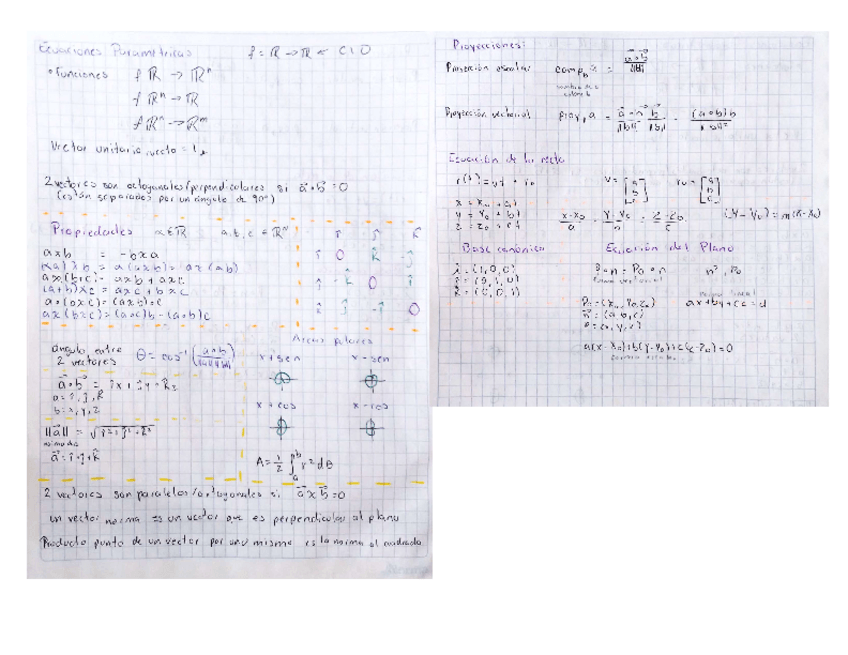 Ecuaciones Parametricas
f: R → R
• Funciones f R → Rⁿ
f Rⁿ → R
f Rⁿ → Rᵐ
Vector unitario, vector = 1
2 vectores son octogonales/perpendiculares si a⃗ • b⃗ = 0
(están separados por un ángulo de 90°)
Propiedades α ∈ R a, b, c ∈ Rⁿ
axb = -bxa
ax(b+c) = axb + axc
(a+b)xc = axc + bxc
a•(bxc) = (axb)•c
ax(bxc) = (a•c)b - (a•b)c
î ĵ k̂
î 0 k̂ -ĵ
ĵ -k̂ 0 î
k̂ ĵ -î 0
Areas polares
ángulo entre
2 vectores θ = cos⁻¹
r + sen r - sen
r + cos r - cos
A = 1/2 ∫ₐᵇ r² dθ
a = î, ĵ, k̂
b = x, y, z
a⃗ = î + ĵ + k̂
2 vectores son paralelos/octogonales si a⃗ x b⃗ = 0
un vector norma es un vector que es perpendicular al plano
Producto punto de un vector por uno mismo es la norma al cuadrado
Proyecciones:
Proyección escalar comp_b a⃗ = a⃗•b⃗
Proyección vectorial proy_b a = (a•b)b
Ecuación de la recta
r(t) = vt + r₀ v = [a b c] r₀ = [a b c]
x = x₀ + at
y = y₀ + bt
z = z₀ + ct
x-x₀/a = y-y₀/b = z-z₀/c (y-y₀) = m(x-x₀)
Base canónica Ecuación del Plano
î = (1,0,0)
ĵ = (0,1,0)
k̂ = (0,0,1)
P•n = P₀•n n⃗, P₀
P₀ = (x₀, y₀, z₀) ax + by + cz = d
n⃗ = (a, b, c)
P = (x, y, z)
a(x-x₀) + b(y-y₀) + c(z-z₀) = 0